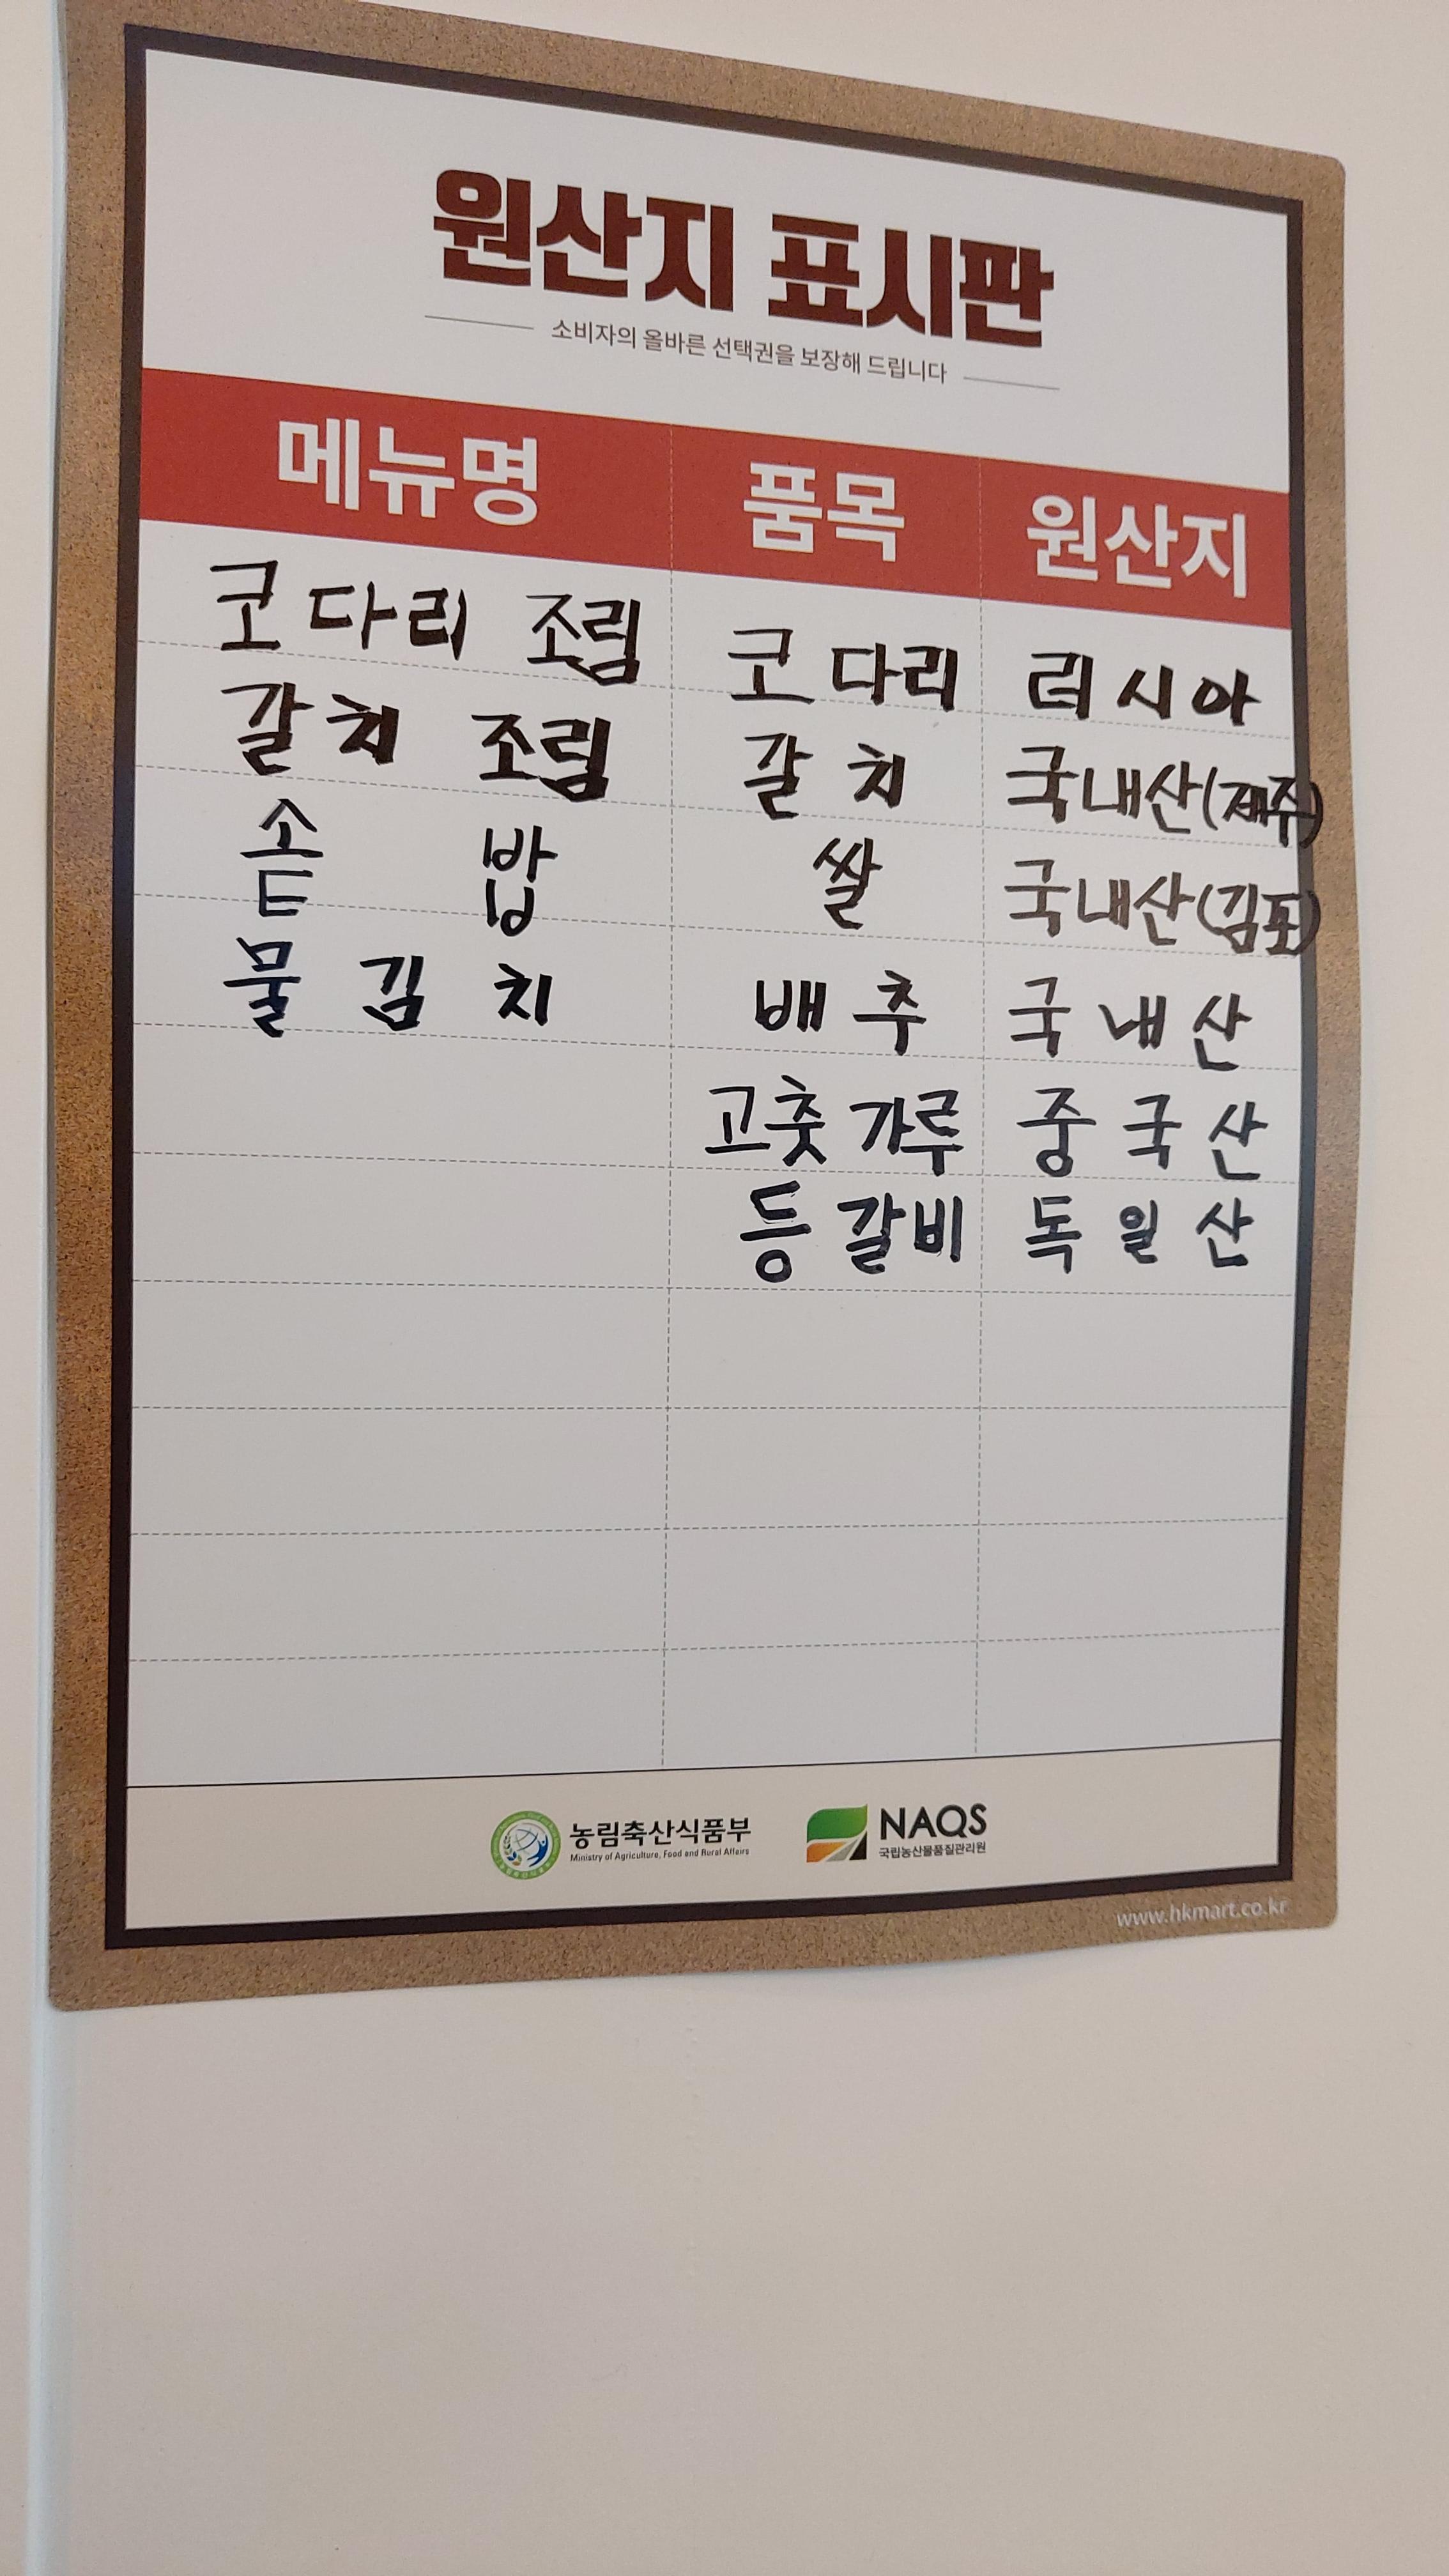 원산지 표시판
소비자의 올바른 선택권을 보장해 드립니다
메뉴명 품목 원산지
코다리 조림 코다리 러시아
갈치 조림 갈치 국내산(제주)
솥밥 쌀 국내산(김포)
물김치 배추 국내산
고춧가루 중국산
등갈비 독일산
농림축산식품부
Ministry of Agriculture, Food and Rural Affairs
NAQS
국립농산물품질관리원
www.hkmart.co.kr